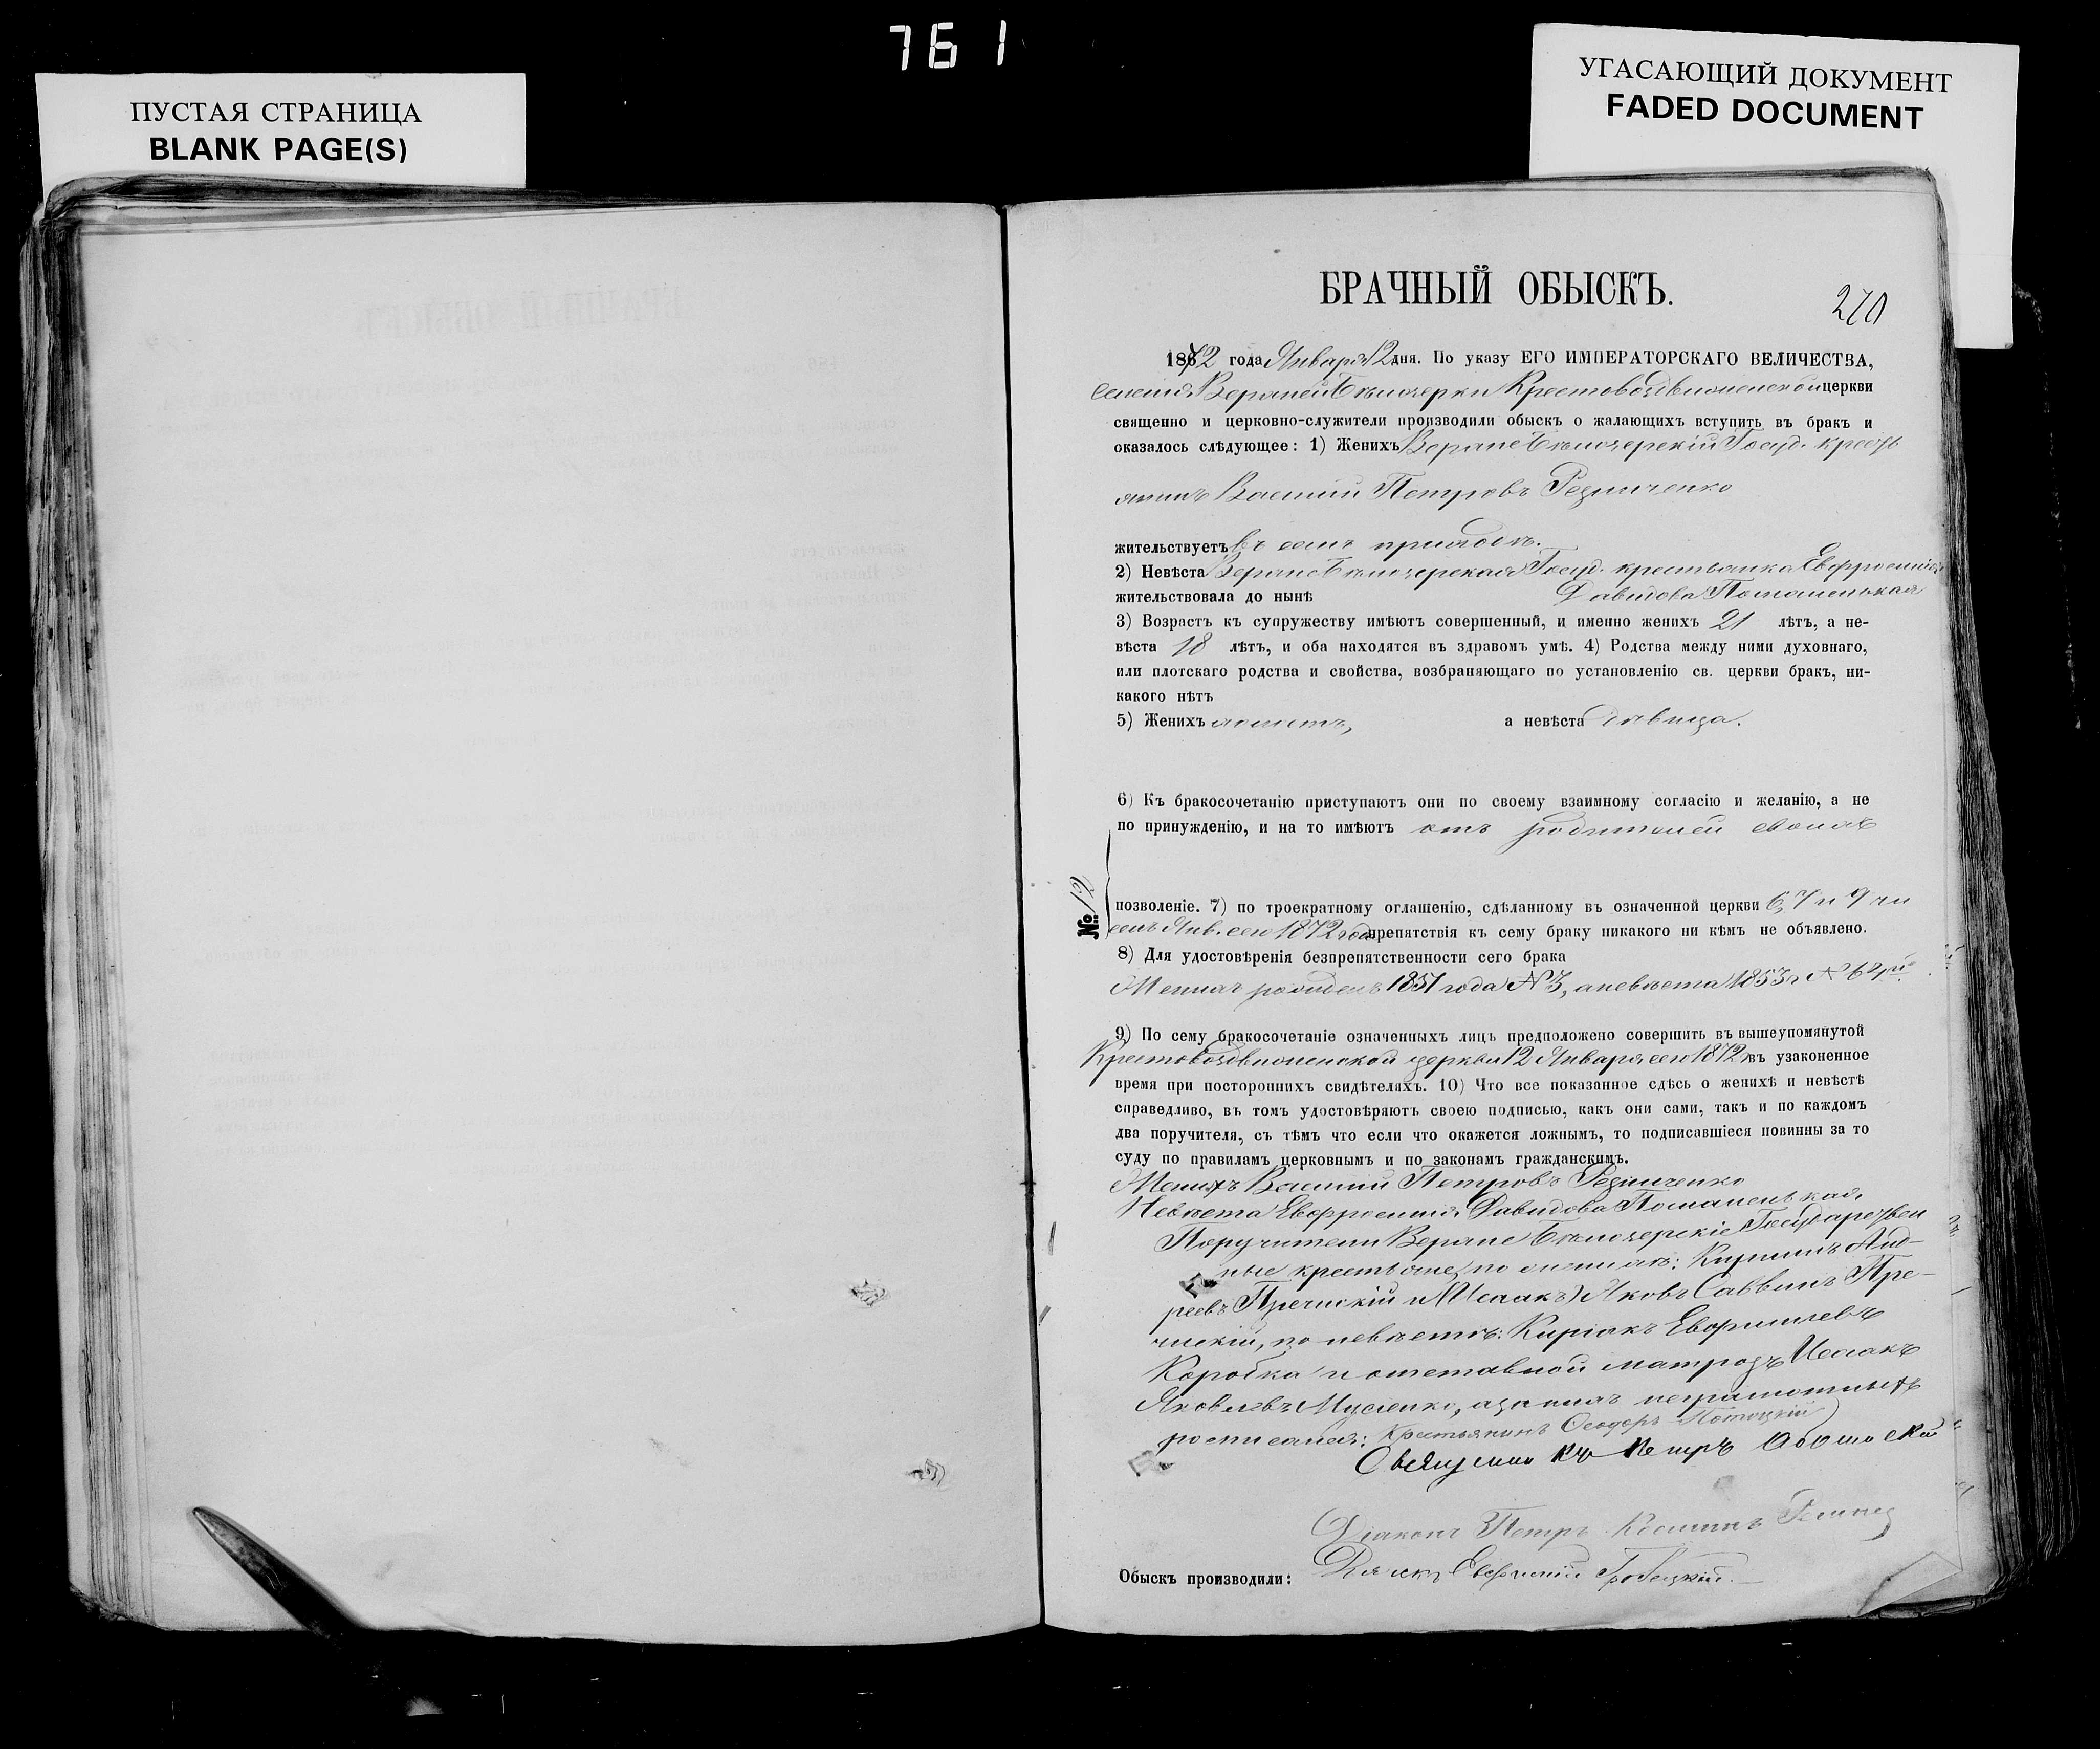 761
ПУСТАЯ СТРАНИЦА
BLANK PAGE(S)
УГАСАЮЩИЙ ДОКУМЕНТ
FADED DOCUMENT
БРАЧНЫЙ ОБЫСКЪ.
270
1872 года Января 12 дня. По указу ЕГО ИМПЕРАТОРСКАГО ВЕЛИЧЕСТВА,
селенія Верхней Бѣлозерки Крестовоздвиженской церкви
священно и церковно-служители производили обыскъ о жалающихъ вступить въ бракъ и
оказалось слѣдующее: 1) Женихъ Верхне Бѣлозерскій Госуд. кресть
янинъ Василій Петровъ Резниченко
жительствуетъ въ семъ приходѣ.
2) Невѣста Верхне Бѣлозерская Госуд. крестьянка Евфросинія
жительствовала до нынѣ Давидова Поманенькая
3) Возрастъ къ супружеству имѣютъ совершенный, и именно женихъ 21 лѣтъ, а не-
вѣста 18 лѣтъ, и оба находятся въ здравомъ умѣ. 4) Родства между ними духовнаго,
или плотскаго родства и свойства, возбраняющаго по установленію св. церкви бракъ, ни-
какого нѣтъ
5) Женихъ холостъ, а невѣста дѣвица.
6) Къ бракосочетанію приступаютъ они по своему взаимному согласію и желанію, а не
по принужденію, и на то имѣютъ отъ родителей своихъ
№ 12
позволеніе. 7) по троекратному оглашенію, сдѣланному въ означенной церкви 6, 7 и 9 чи
селъ Янв. сего 1872 года препятствія къ сему браку никакого ни кѣмъ не объявлено.
8) Для удостовѣренія безпрепятственности сего брака
Женихъ рожденъ 1851 года № 3, а невѣста 1853 г. №
9) По сему бракосочетаніе означенныхъ лицъ предположено совершить въ вышеупомянутой
Крестовоздвиженской церкви 12 Января сего 1872 въ узаконенное
время при постороннихъ свидѣтеляхъ. 10) Что все показанное сдѣсь о женихѣ и невѣстѣ
справедливо, въ томъ удостовѣряютъ своею подписью, какъ они сами, такъ и по каждомъ
два поручителя, съ тѣмъ что если что окажется ложнымъ, то подписавшіеся повинны за то
суду по правиламъ церковнымъ и по законамъ гражданскимъ.
Женихъ Василій Петровъ Резниченко
Невѣста Евфросинія Давидова Поманенькая
Поручители Верхне Бѣлозерскіе Государствен
ные крестьяне, по женихѣ: Кириллъ Анд-
реевъ и (Исаакъ) Яковъ Саввинъ
по невѣстѣ: Киріакъ
Коробка и отставной матрозъ Исаакъ
Яковлевъ Мусіенко, а за нихъ неграмотныхъ
росписался: Крестьянинъ Ѳеодоръ Потоцкій
Священникъ Петръ
Діаконъ Петръ
Обыскъ производили: Дьячекъ Евфимій